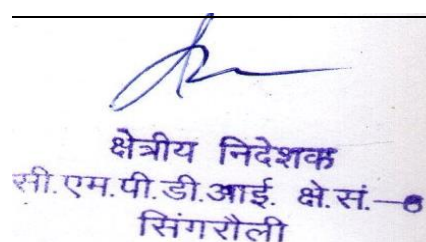 क्षेत्रीय निदेशक
सी.एम.पी.डी.आई. क्षे.सं.–
सिंगरौली